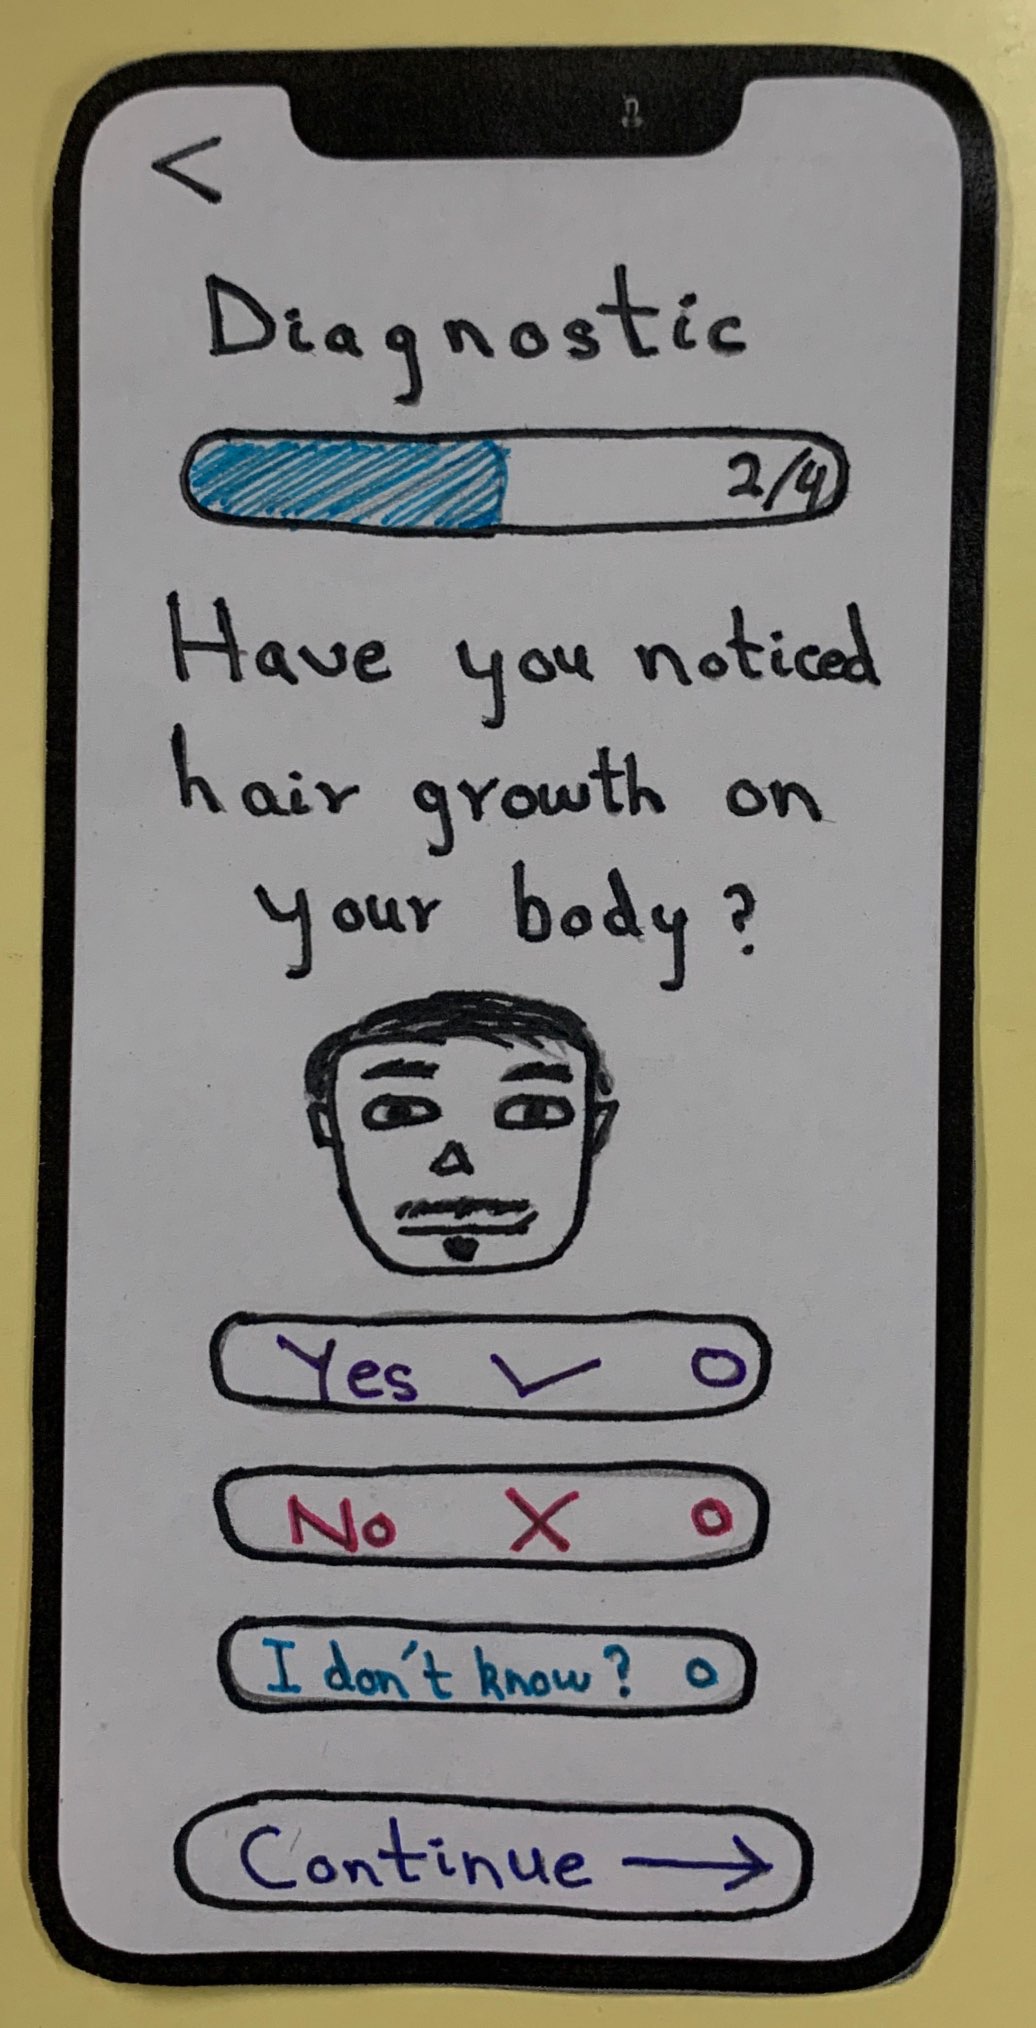 <
Diagnostic
2/4
Have you noticed
hair growth on
your body?
Yes ✓ O
No X O
I don't know? O
Continue →